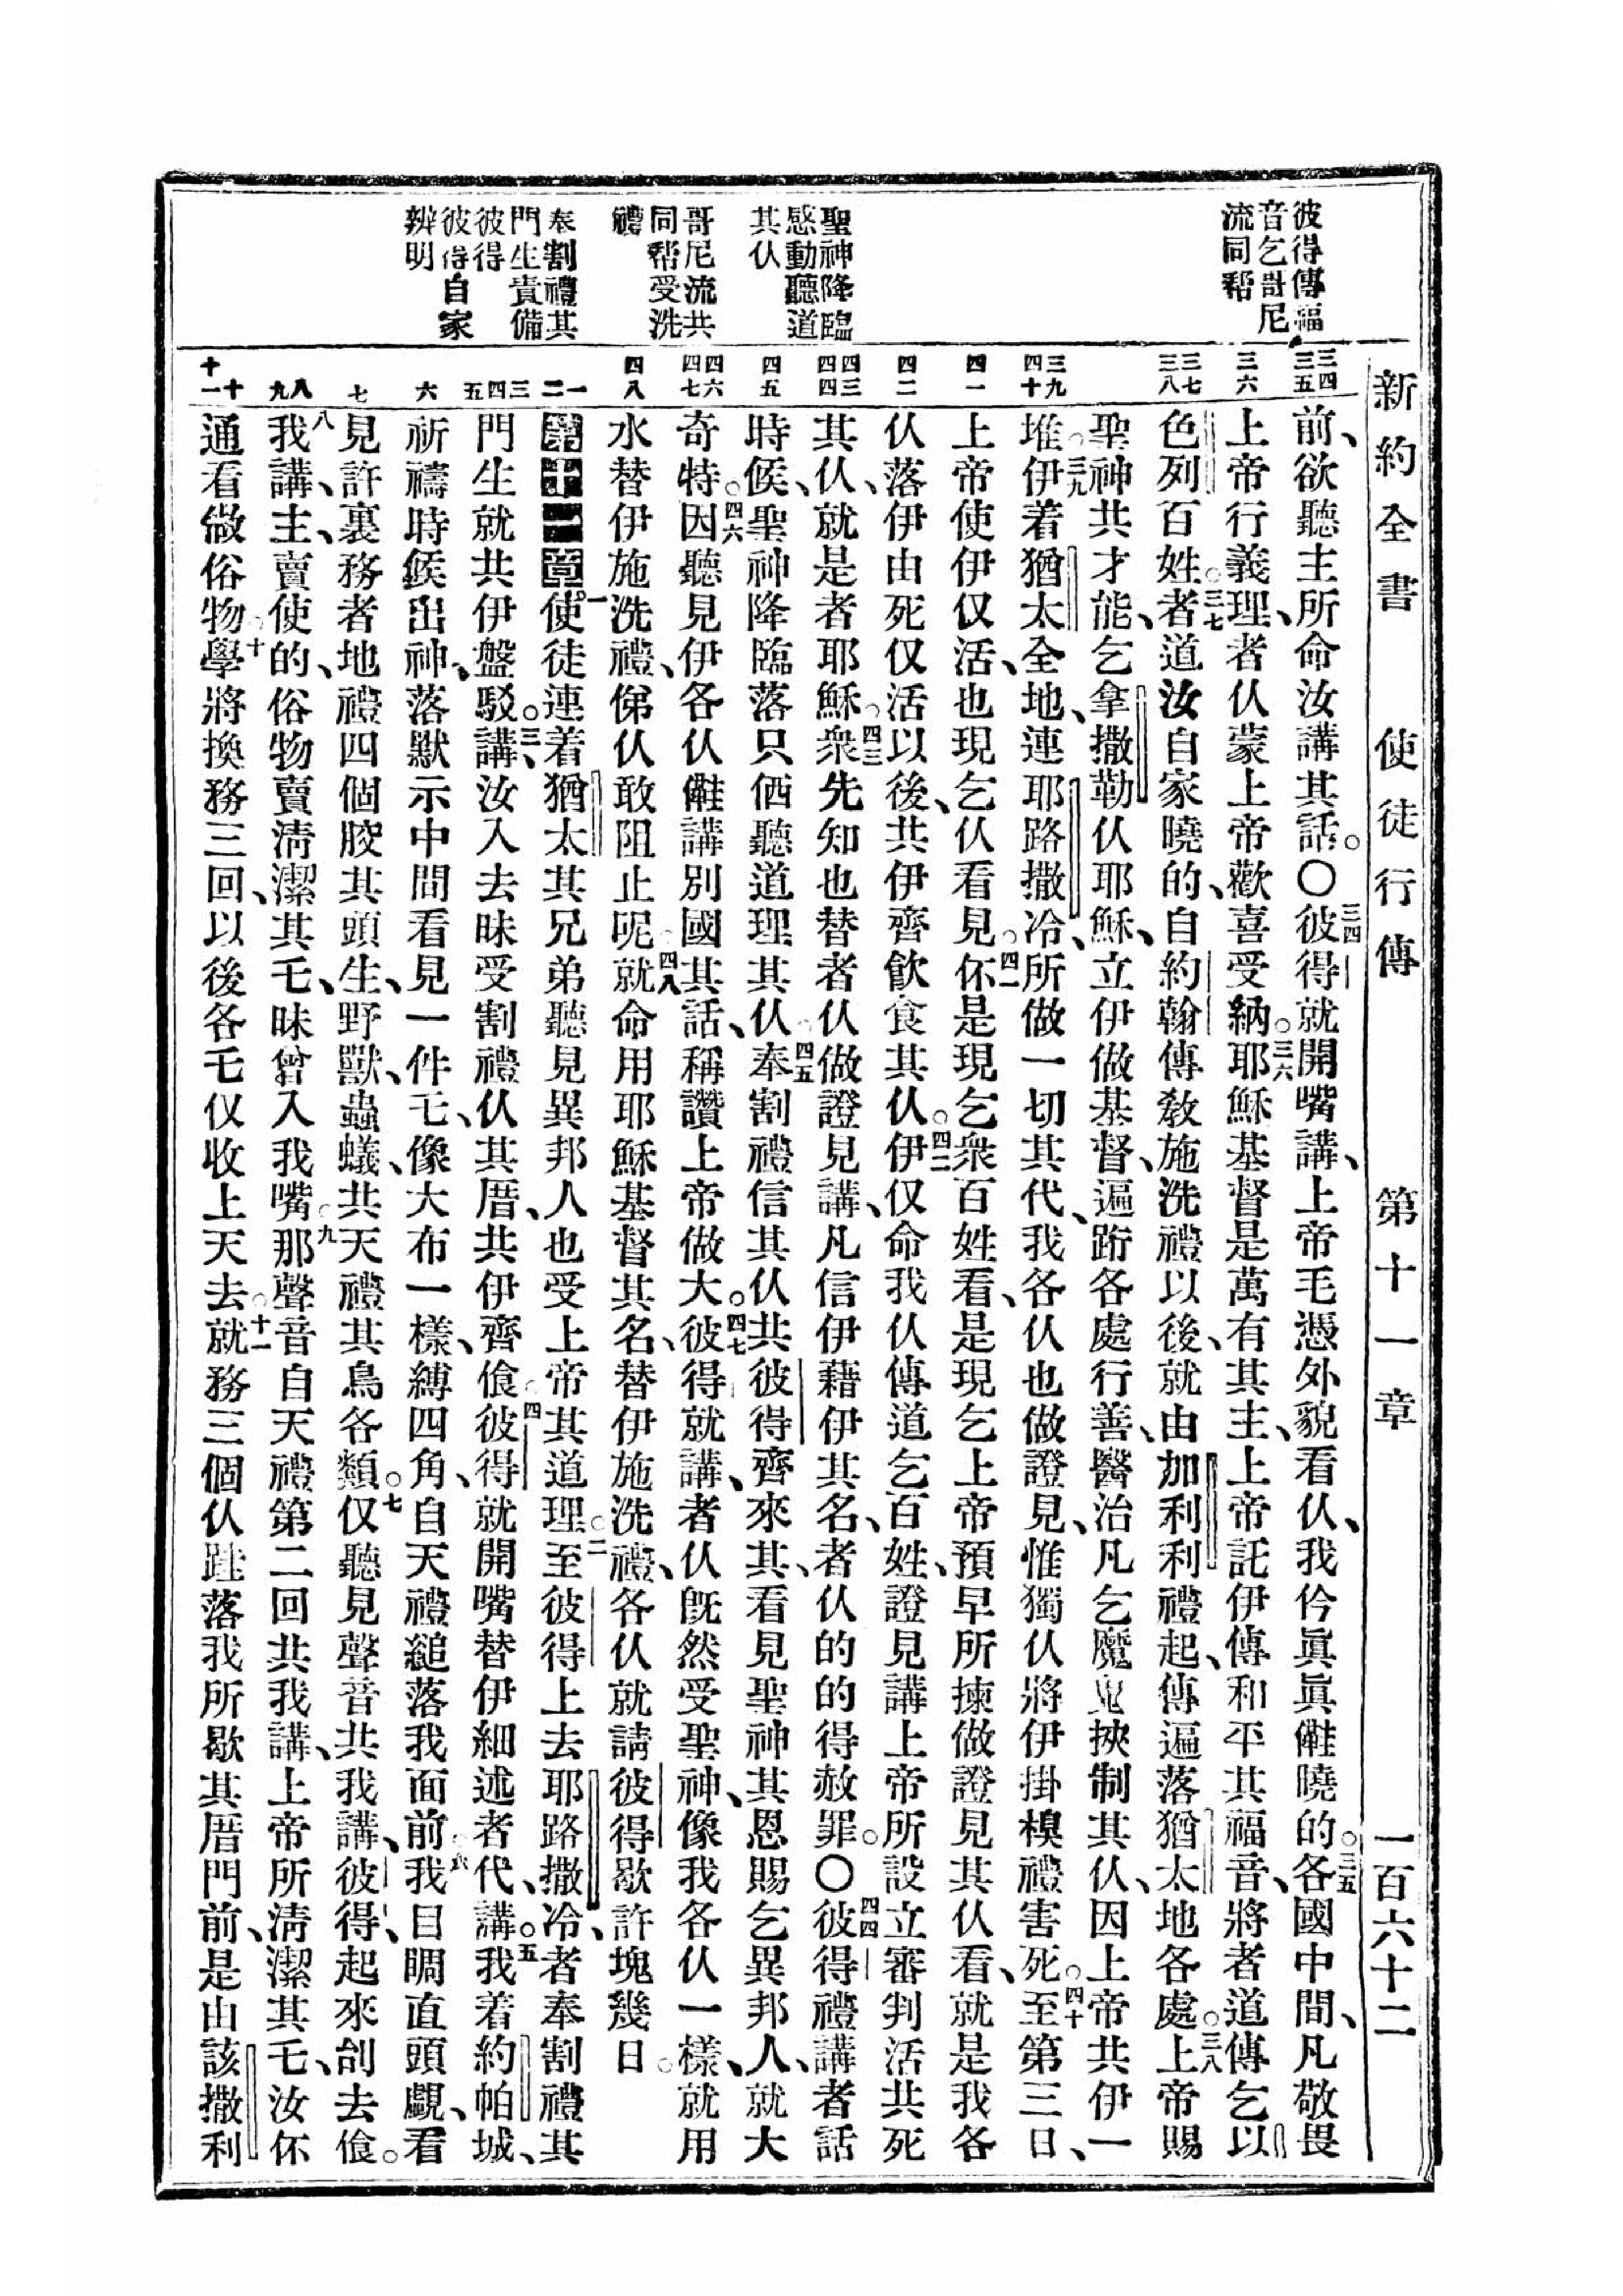 新約全書 使徒行傳 第十一章 一百六十二
彼得傳福
音乞哥尼
流同幫
聖神降臨
感動聽道
其伙
哥尼流共
同幫受洗
禮
奉割禮其
門生責備
彼得
彼得自家
辨明
三四 三五
三六
三七 三八
三九 四十
四一
四二
四三 四四
四五
四六 四七
四八
一 二
三 四 五
六
七
八 九
十 十一
前、欲聽主所命汝講其話。〇三四彼得就開嘴講、上帝毛憑外貌看伙、我仱眞眞𪜶曉的。三五各國中間、凡敬畏
上帝行義理者伙、蒙上帝歡喜受納。三六耶穌基督是萬有其主、上帝託伊傳和平其福音、將者道傳乞以
色列百姓。三七者道汝自家曉的、自約翰傳教施洗禮以後、就由加利利禮起、傳遍落猶太地各處。三八上帝賜
聖神共才能、乞拿撒勒伙耶穌、立伊做基督、遍跡各處行善、醫治凡乞魔鬼挾制其伙、因上帝共伊一
堆。三九伊着猶太全地、連耶路撒冷、所做一切其代、我各伙也做證見、惟獨伙將伊掛槻禮害死。四十至第三日、
上帝使伊仅活、也現乞伙看見。四一伓是現乞衆百姓看、是現乞上帝預早所揀做證見其伙看、就是我各
伙落伊由死仅活以後、共伊齊飲食其伙。四二伊仅命我伙傳道乞百姓、證見講上帝所設立審判活共死
其伙、就是者耶穌。四三衆先知也替者伙做證見講、凡信伊藉伊其名、者伙的的得赦罪。〇四四彼得禮講者話
時候、聖神降臨落只伵聽道理其伙。四五奉割禮信其伙共彼得齊來其、看見聖神其恩賜乞異邦人、就大
奇特。四六因聽見伊各伙講別國其話、稱讚上帝做大。四七彼得就講、者伙旣然受聖神、像我各伙一樣、就用
水替伊施洗禮、俤伙敢阻止呢。四八就命用耶穌基督其名、替伊施洗禮、各伙就請彼得歇許塊幾日。
第十一章一使徒連着猶太其兄弟聽見異邦人也受上帝其道理。二至彼得上去耶路撒冷、者奉割禮其
門生就共伊盤駁。三講、汝入去昧受割禮伙其厝、共伊齊飡。四彼得就開嘴替伊細述者代、講。五我着約帕城、
祈禱時候出神、落默示中間看見一件乇、像大布一樣、縛四角、自天禮縋落我面前。六我目睭直頭覰、看
見許裏務者地禮四個骹其頭生、野獸、蟲蟻、共天禮其鳥各類。七仅聽見聲音共我講、彼得、起來刣去飡。
八我講、主、賣使的、俗物賣淸潔其乇、昧曾入我嘴。九那聲音自天禮第二回共我講、上帝所淸潔其乇、汝伓
通看做俗物。十學將換務三回、以後各乇仅收上天去。十一就務三個伙跬落我所歇其厝門前、是由該撒利